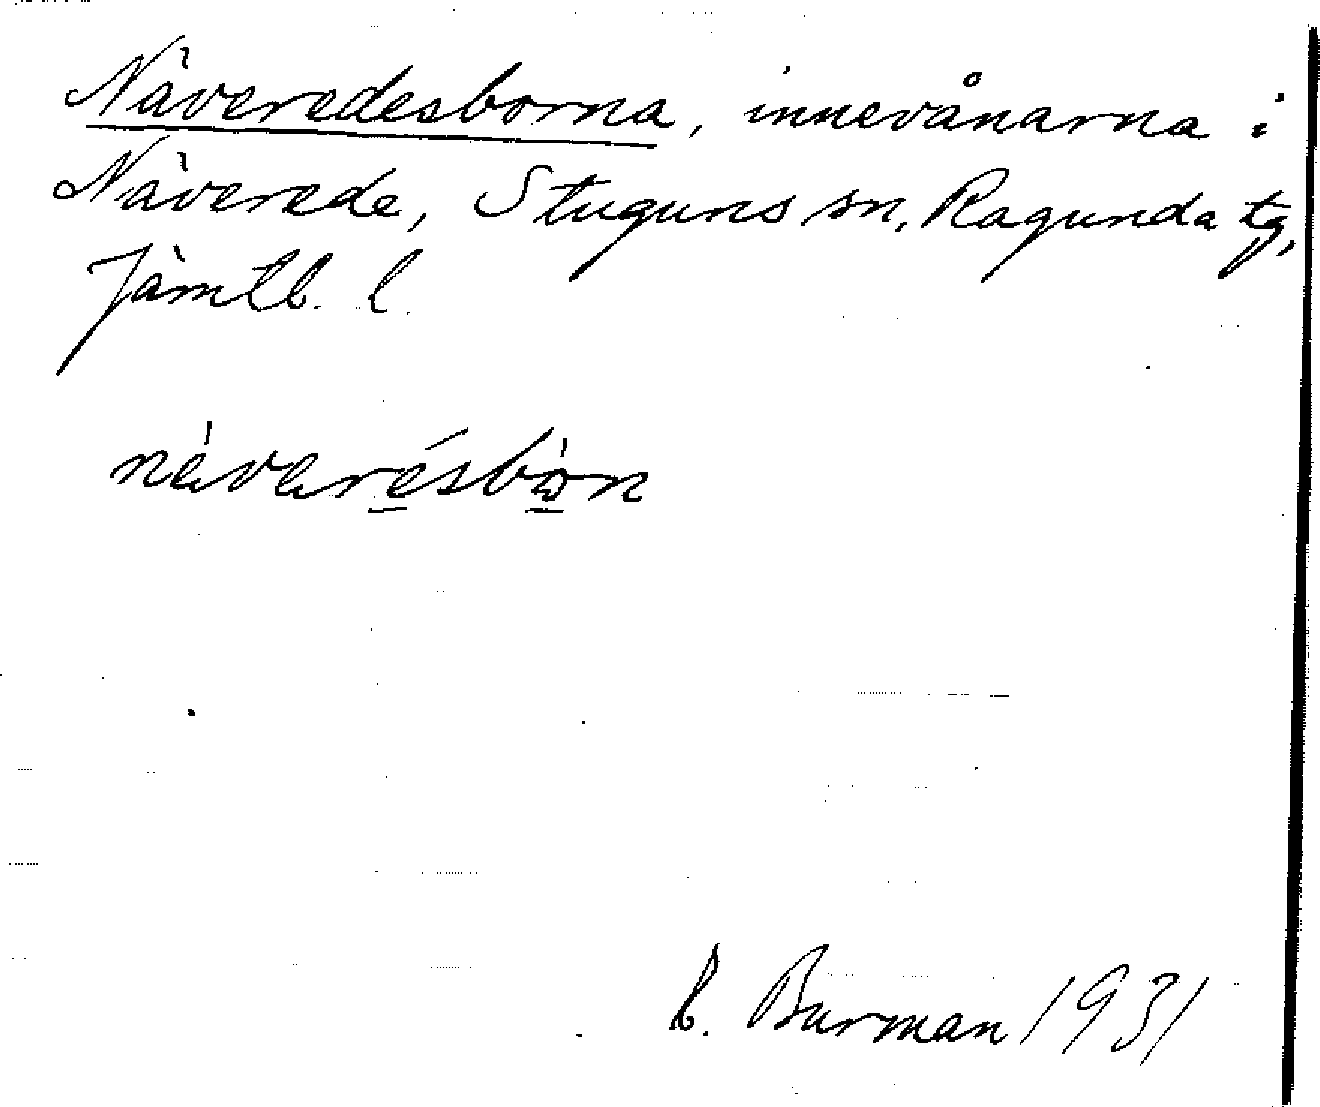 Näveredesborna, innevånarna i
Näverede, Stuguns sn, Ragunda tg,
Jämtl. l.
näverésbön
B. Burman 1931